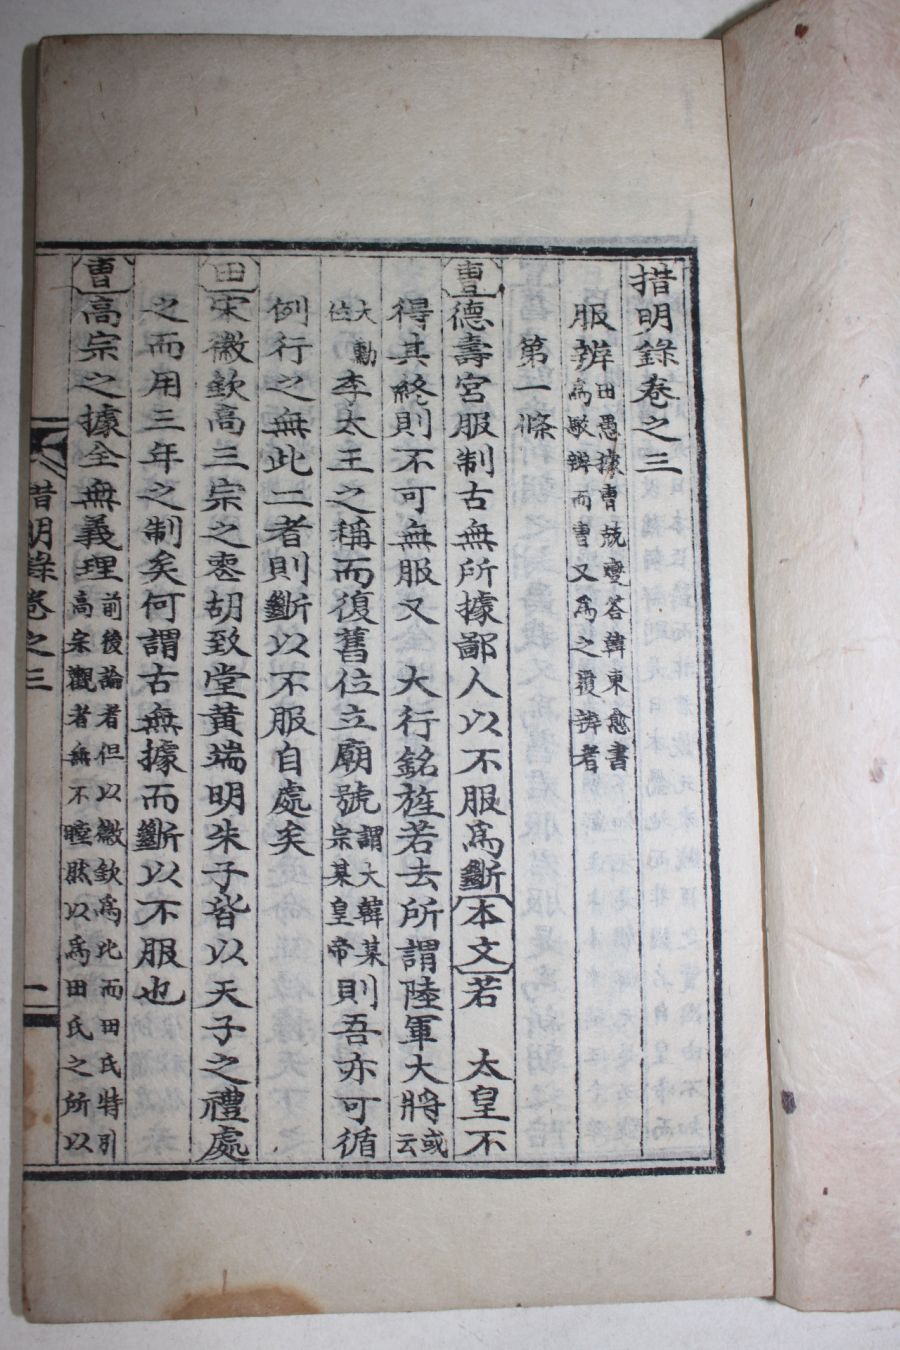 措明錄卷之三
服辨田愚據曹兢燮荅韓東愈書爲敏辨而曹又爲之覆辨者
第一條
曹德壽宮服制古無所據鄙人以不服爲斷本文若 太皇不
得其終則不可無服又 大行銘旌若去所謂陸軍大將或云
大勳位李太王之稱而復舊位立廟號謂大韓某宗某皇帝則吾亦可循
例行之無此二者則斷以不服自處矣
田宋徽欽高三宗之喪胡致堂黃端明朱子皆以天子之禮處
之而用三年之制矣何謂古無據而斷以不服也
曹高宗之據全無義理前後論者但以徽欽爲比而田氏特引高宗觀者無不瞠然以爲田氏之所以
措明錄卷之三 一